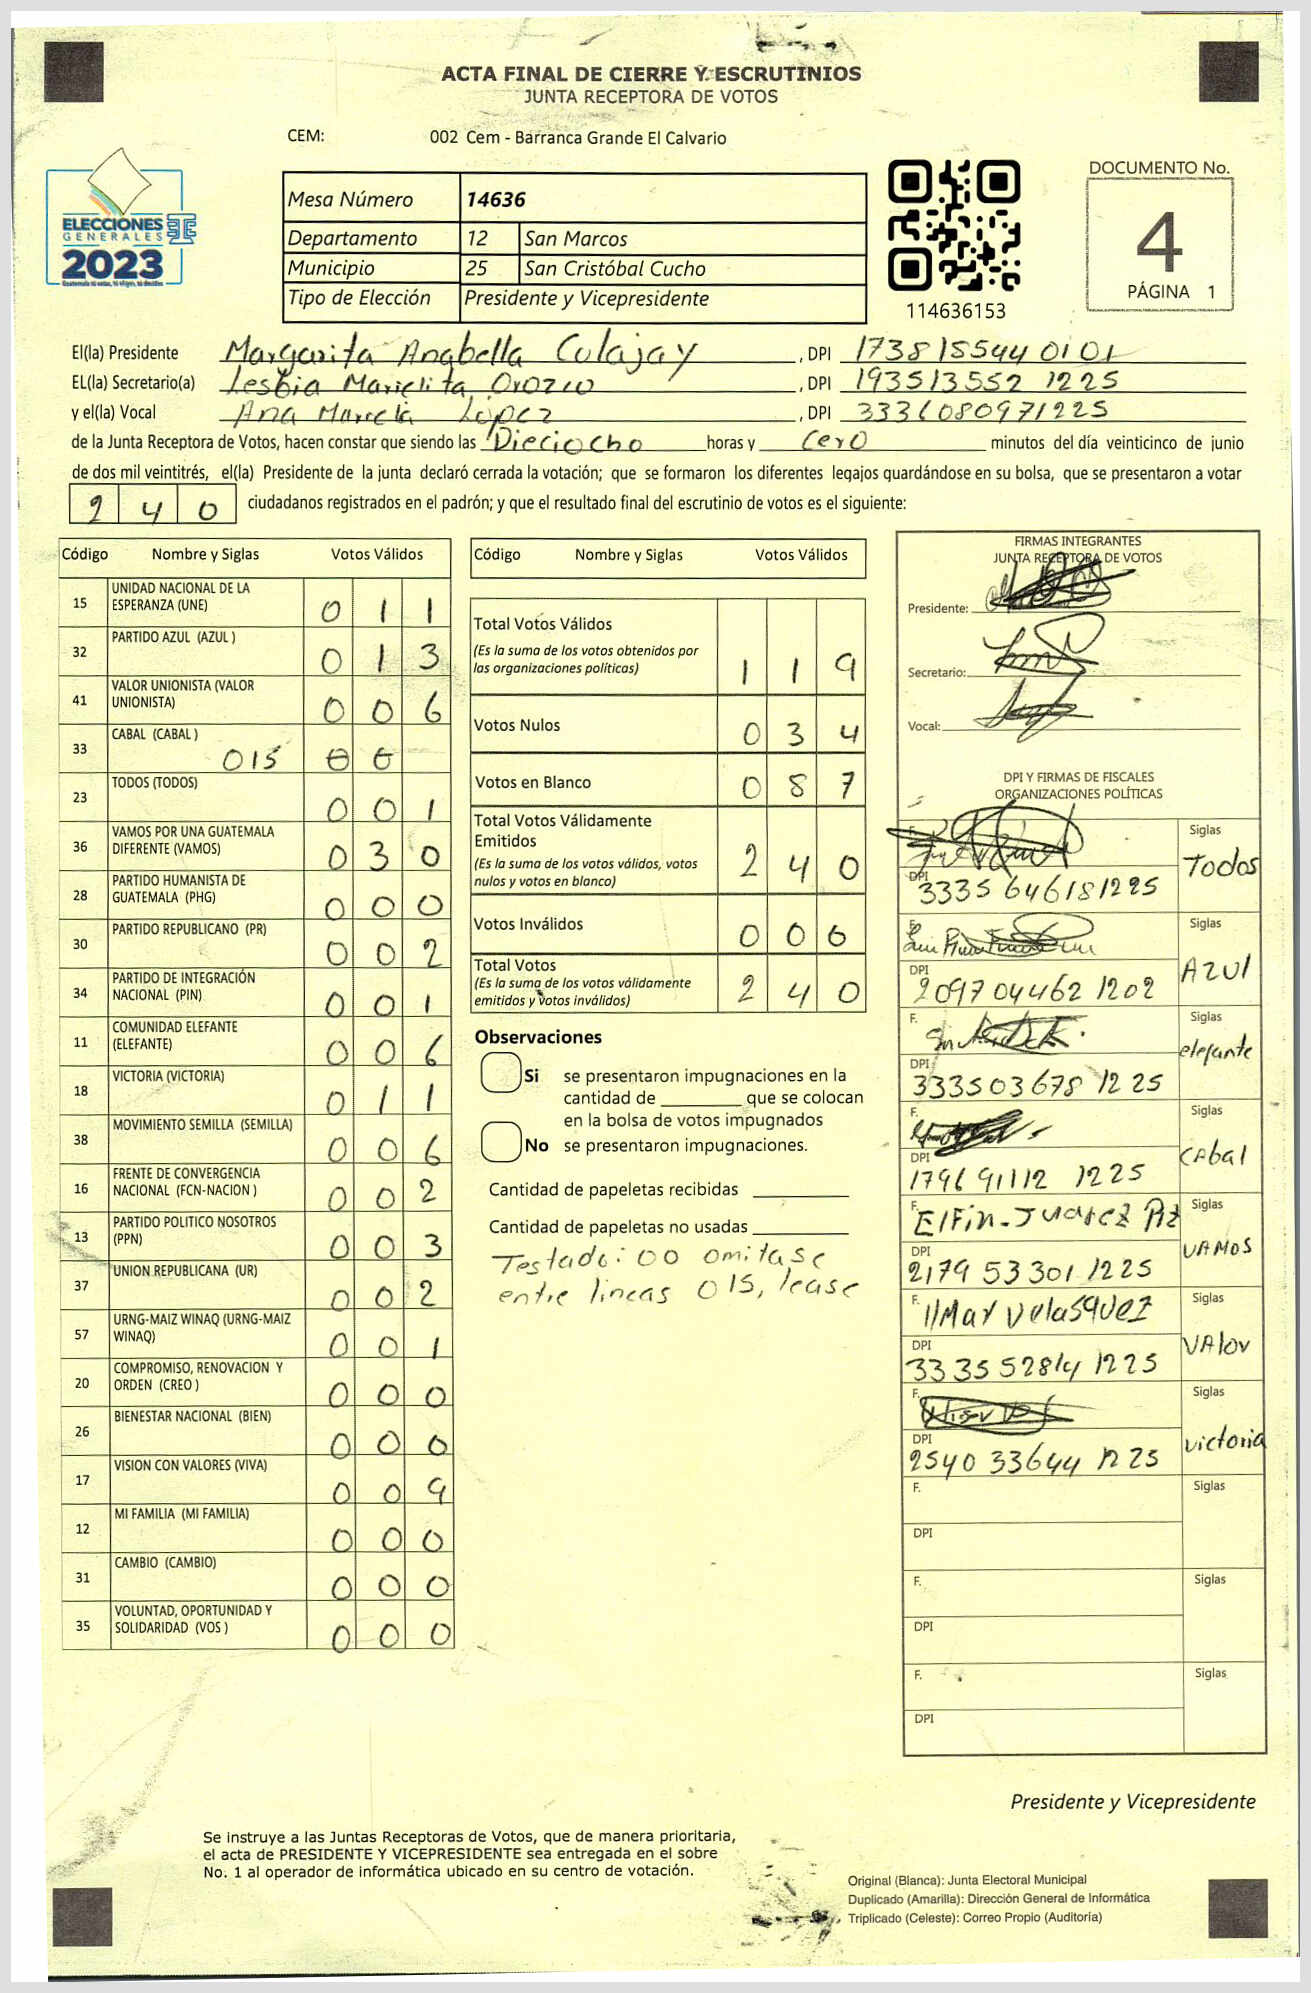 ACTA FINAL DE CIERRE Y ESCRUTINIOS
JUNTA RECEPTORA DE VOTOS
CEM: 002 Cem - Barranca Grande El Calvario
ELECCIONES
GENERALES
2023
Mesa Número 14636
Departamento 12 San Marcos
Municipio 25 San Cristóbal Cucho
Tipo de Elección Presidente y Vicepresidente
114636153
DOCUMENTO No.
4
PÁGINA 1
El(la) Presidente Margarita Anabella Culajay , DPI 1738155440101
EL(la) Secretario(a) Lesbia Marielita Orozco , DPI 193513552 1225
y el(la) Vocal Ana Marcela López , DPI 3336080971225
de la Junta Receptora de Votos, hacen constar que siendo las Dieciocho horas y cero minutos del día veinticinco de junio
de dos mil veintitrés, el(la) Presidente de la junta declaró cerrada la votación; que se formaron los diferentes legajos guardándose en su bolsa, que se presentaron a votar
2 4 0 ciudadanos registrados en el padrón; y que el resultado final del escrutinio de votos es el siguiente:
Código Nombre y Siglas Votos Válidos
15 UNIDAD NACIONAL DE LA ESPERANZA (UNE) 0 1 1
32 PARTIDO AZUL (AZUL ) 0 1 3
41 VALOR UNIONISTA (VALOR UNIONISTA) 0 0 6
33 CABAL (CABAL ) 015
23 TODOS (TODOS) 0 0 1
36 VAMOS POR UNA GUATEMALA DIFERENTE (VAMOS) 0 3 0
28 PARTIDO HUMANISTA DE GUATEMALA (PHG) 0 0 0
30 PARTIDO REPUBLICANO (PR) 0 0 2
34 PARTIDO DE INTEGRACIÓN NACIONAL (PIN) 0 0 1
11 COMUNIDAD ELEFANTE (ELEFANTE) 0 0 6
18 VICTORIA (VICTORIA) 0 1 1
38 MOVIMIENTO SEMILLA (SEMILLA) 0 0 6
16 FRENTE DE CONVERGENCIA NACIONAL (FCN-NACION ) 0 0 2
13 PARTIDO POLITICO NOSOTROS (PPN) 0 0 3
37 UNION REPUBLICANA (UR) 0 0 2
57 URNG-MAIZ WINAQ (URNG-MAIZ WINAQ) 0 0 1
20 COMPROMISO, RENOVACION Y ORDEN (CREO ) 0 0 0
26 BIENESTAR NACIONAL (BIEN) 0 0 0
17 VISION CON VALORES (VIVA) 0 0 9
12 MI FAMILIA (MI FAMILIA) 0 0 0
31 CAMBIO (CAMBIO) 0 0 0
35 VOLUNTAD, OPORTUNIDAD Y SOLIDARIDAD (VOS ) 0 0 0
Código Nombre y Siglas Votos Válidos
Total Votos Válidos
(Es la suma de los votos obtenidos por
las organizaciones políticas) 1 1 9
Votos Nulos 0 3 4
Votos en Blanco 0 8 7
Total Votos Válidamente
Emitidos
(Es la suma de los votos válidos, votos
nulos y votos en blanco) 2 4 0
Votos Inválidos 0 0 0
Total Votos
(Es la suma de los votos válidamente
emitidos y votos inválidos) 2 4 0
Observaciones
Si se presentaron impugnaciones en la
cantidad de ________ que se colocan
en la bolsa de votos impugnados
No se presentaron impugnaciones.
Cantidad de papeletas recibidas
Cantidad de papeletas no usadas
Testado: 00 omitase
entre lineas 015, lease
FIRMAS INTEGRANTES
JUNTA RECEPTORA DE VOTOS
Presidente:
Secretario:
Vocal:
DPI Y FIRMAS DE FISCALES
ORGANIZACIONES POLÍTICAS
F. Siglas
TODOS
DPI 3335 64618 1225
F. Siglas
AZUL
DPI 2097 04462 1202
F. Siglas
elefante
DPI 333503678 1225
F. Siglas
CAbal
DPI 179691112 1225
F. Elfin. Juarez Siglas
VAMOS
DPI 2179 53301 1225
F. Ilmar Velasquez Siglas
VAlor
DPI 3335 52814 1225
F. Siglas
victoria
DPI 2540 33644 1225
F. Siglas
DPI
F. Siglas
DPI
F. Siglas
DPI
Presidente y Vicepresidente
Se instruye a las Juntas Receptoras de Votos, que de manera prioritaria,
el acta de PRESIDENTE Y VICEPRESIDENTE sea entregada en el sobre
No. 1 al operador de informática ubicado en su centro de votación.
Original (Blanca): Junta Electoral Municipal
Duplicado (Amarilla): Dirección General de Informática
Triplicado (Celeste): Correo Propio (Auditoría)